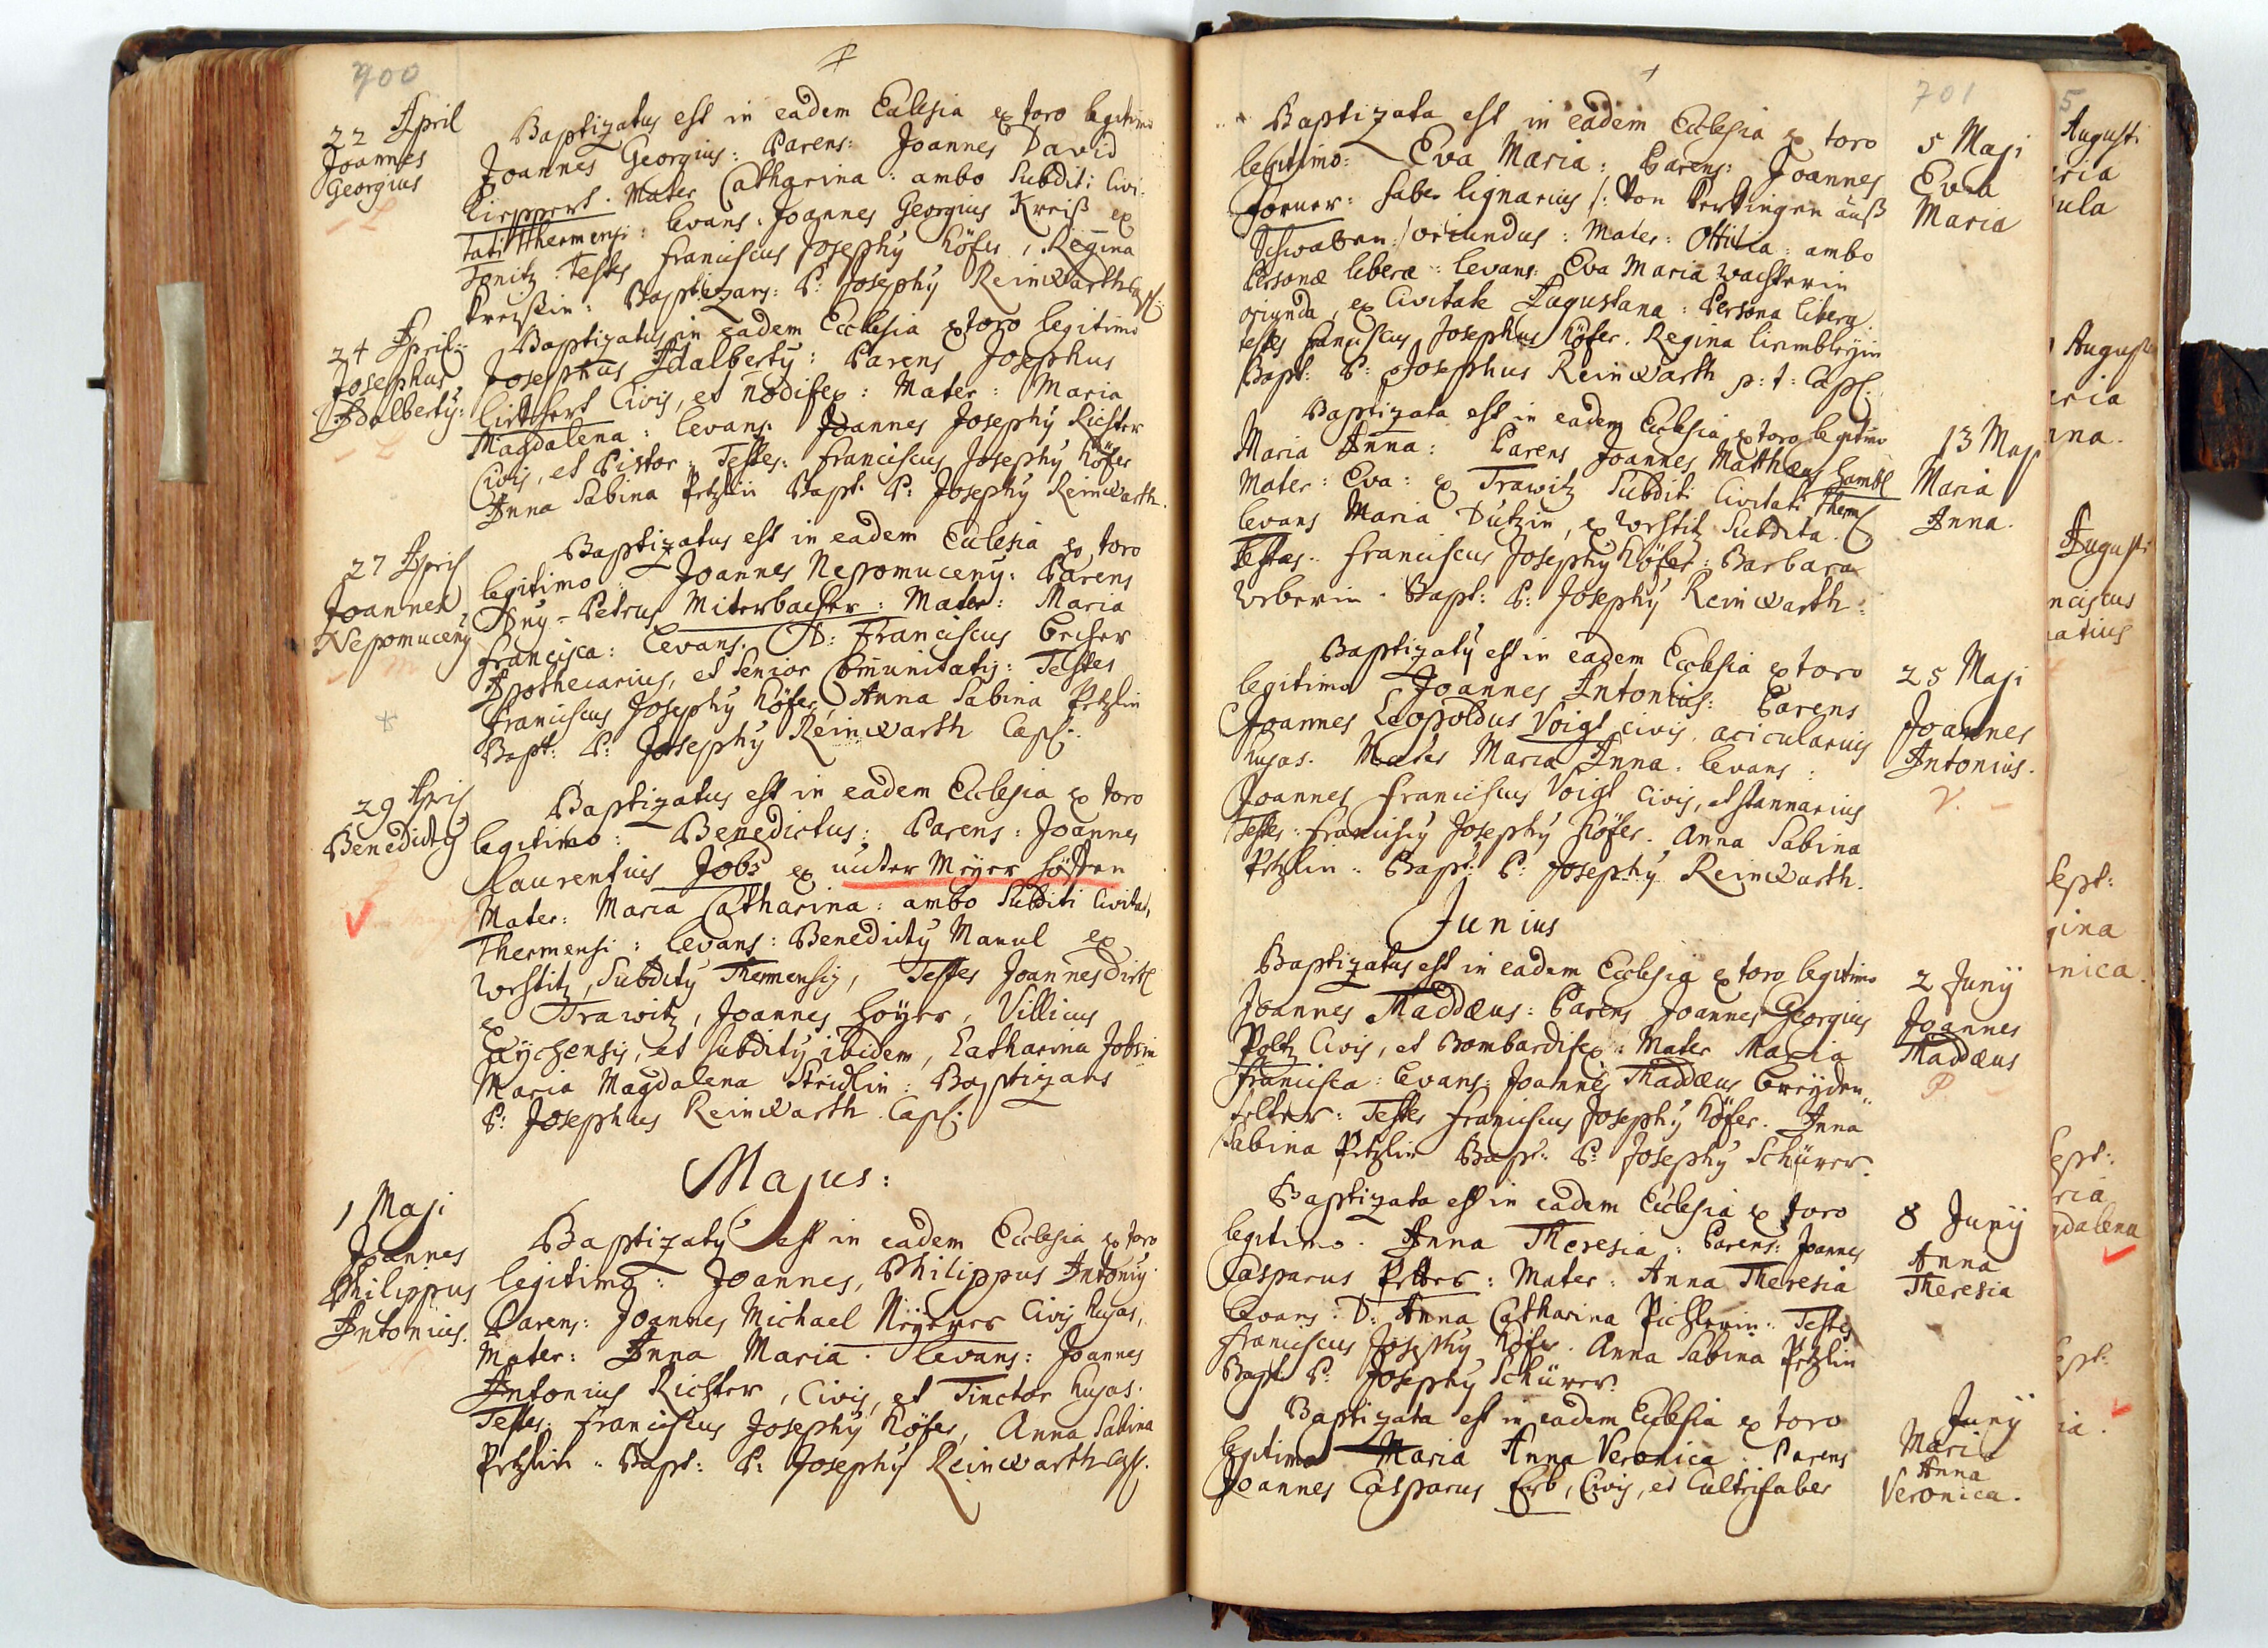 700
22 April
Joannes
Georgius
Baptizatus est in eadem Ecclesia ex toro legitimo
Joannes Georgius: Parens: Joannes David
Lieppert. Mater Catharina: ambo Subditi Civi-
tati Thermensi: Levans: Joannes Georgius Kreiß ex
Donitz. Testes Franciscus Josephy Höfer, Regina
Kreißin: Baptizans: P: Josephy Reinwarth Capl:
24 April:
Josephus
Adalberty:
Baptizatus in eadem Ecclesia ex toro legitimo
Josephus Adalberty: Parens Josephus
Civis, et nodifex: Mater: Maria
Magdalena: Levans: Joannes Josephy Richter
Civis, et Pistor: Testes: Franciscus Josephy Höfer
Anna Sabina Petzlin Bapt: P: Josephy Reinwarth.
27 April
Joannes
Nepomuceny
Baptizatus est in eadem Ecclesia ex toro
legitimo: Joannes Nepomuceny: Parens
Petrus Miterbacher: Mater: Maria
Francisca: Levans: D: Franciscus Becher
Apothecarius, et Senior Comunitatis: Testes
Franciscus Josephy Höfer, Anna Sabina Petzlin
Bapt: P: Josephy Reinwarth Capl:
29 April
Benedicty
Baptizatus est in eadem Ecclesia ex toro
legitimo: Benedictus: Parens: Joannes
Laurentius Jobs ex unter Meyer Höffen
Mater: Maria Catharina: ambo Subditi Civitat,
Thermensi: Levans: Benedicty Manul ex
Wehitz, Subdity Thermensis, Testes Joannes Dirtl
ex Trawitz, Joannes Höyer, Villicus
Aychensis, et subdity ibidem, Catharina Jobsin
Maria Magdalena Stridlin: Baptizans
P: Josephus Reinwarth. Capl:
Majus:
1 Maji
Joannes
Philippus
Antonius.
Baptizaty est in eadem Ecclesia ex toro
legitimo: Joannes, Philippus Antoniy
Parens: Joannes Michael Civis hujas,
Mater: Anna Maria. Levans: Joannes
Antonius Richter, Civis, et Tinctor hujas.
Testes: Franciscus Josephy Höfer, Anna Sabina
Petzlin. Bapt: P: Josephy Reinwarth Capl.
701
5 Maji
Eva
Maria
Baptizata est in eadem Ecclesia ex toro
legitimo: Eva Maria: Parens: Joannes
Forner: faber lignarius /: Von Derdingen auß
Schwaben :/ oriundus: Mater: Ottilia: ambo
Personæ liberæ: Levans: Eva Maria Wachterin
oriunda, ex Civitate Augustana: Persona libera.
testes Franciscus Josephus Höfer. Regina
Bapt: P: Josephus Reinwarth p:t: Capl:
13 Maji
Maria
Anna.
Baptizata est in eadem Ecclesia ex toro legitimo
Maria Anna: Parens Joannes Matthæus Hambl
Mater: Eva: ex Trawitz Subditi Civitati Therm
Levans Maria Dutzin, ex Wehitz Subdita.
Testes: Franciscus Josephy Höfer: Barbara
Weberin. Bapt: P: Josephy Reinwarth:
25 Maji
Joannes
Antonius.
V.
Baptizaty est in eadem Ecclesia ex toro
legitimo Joannes Antonius: Parens
Joannes Leopoldus Voigt civis, acicularius
hujas. Mater Maria Anna. Levans:
Joannes Franciscus Voigt Civis, et stannarius
Testes: Francisiy Josephy Höfer. Anna Sabina
Petzlin. Bapt: P: Josephy Reinwarth.
Junius
2 Junij
Joannes
Thaddæus
P.
Baptizatus est in eadem Ecclesia ex toro legitimo
Joannes Thaddæus: Parens Joannes Georgius
Poltz Civis, et Bombardifex: Mater Maria
Francisca: Levans: Joannes Thaddæus Breyden,,
felter: Testes Franciscus Josephy Höfer. Anna
Sabina Petzlin Bapt: P: Josephy Schürer.
8 Junij
Anna
Theresia
Baptizata est in eadem Ecclesia ex toro
legitimo. Anna Theresia: Parens: Joannes
Casparus Petter: Mater: Anna Theresia
Levans: D: Anna Catharina Pichlerin: Testes
Franciscus Josephy Höfer. Anna Sabina Petzlin
Bapt: P: Josephy Schürer.
Junij
Maria
Anna
Veronica.
Baptizata est in eadem Ecclesia ex toro
legitimo Maria Anna Veronica: Parens
Joannes Casparus Erb, Civis, et Cultrifaber
5
Augusti
ria
ula
August
aria
nna.
Augusti
nciscus
natius
Sept:
gina
onica.
Sept:
ria
gdalena
Sept:
ia.